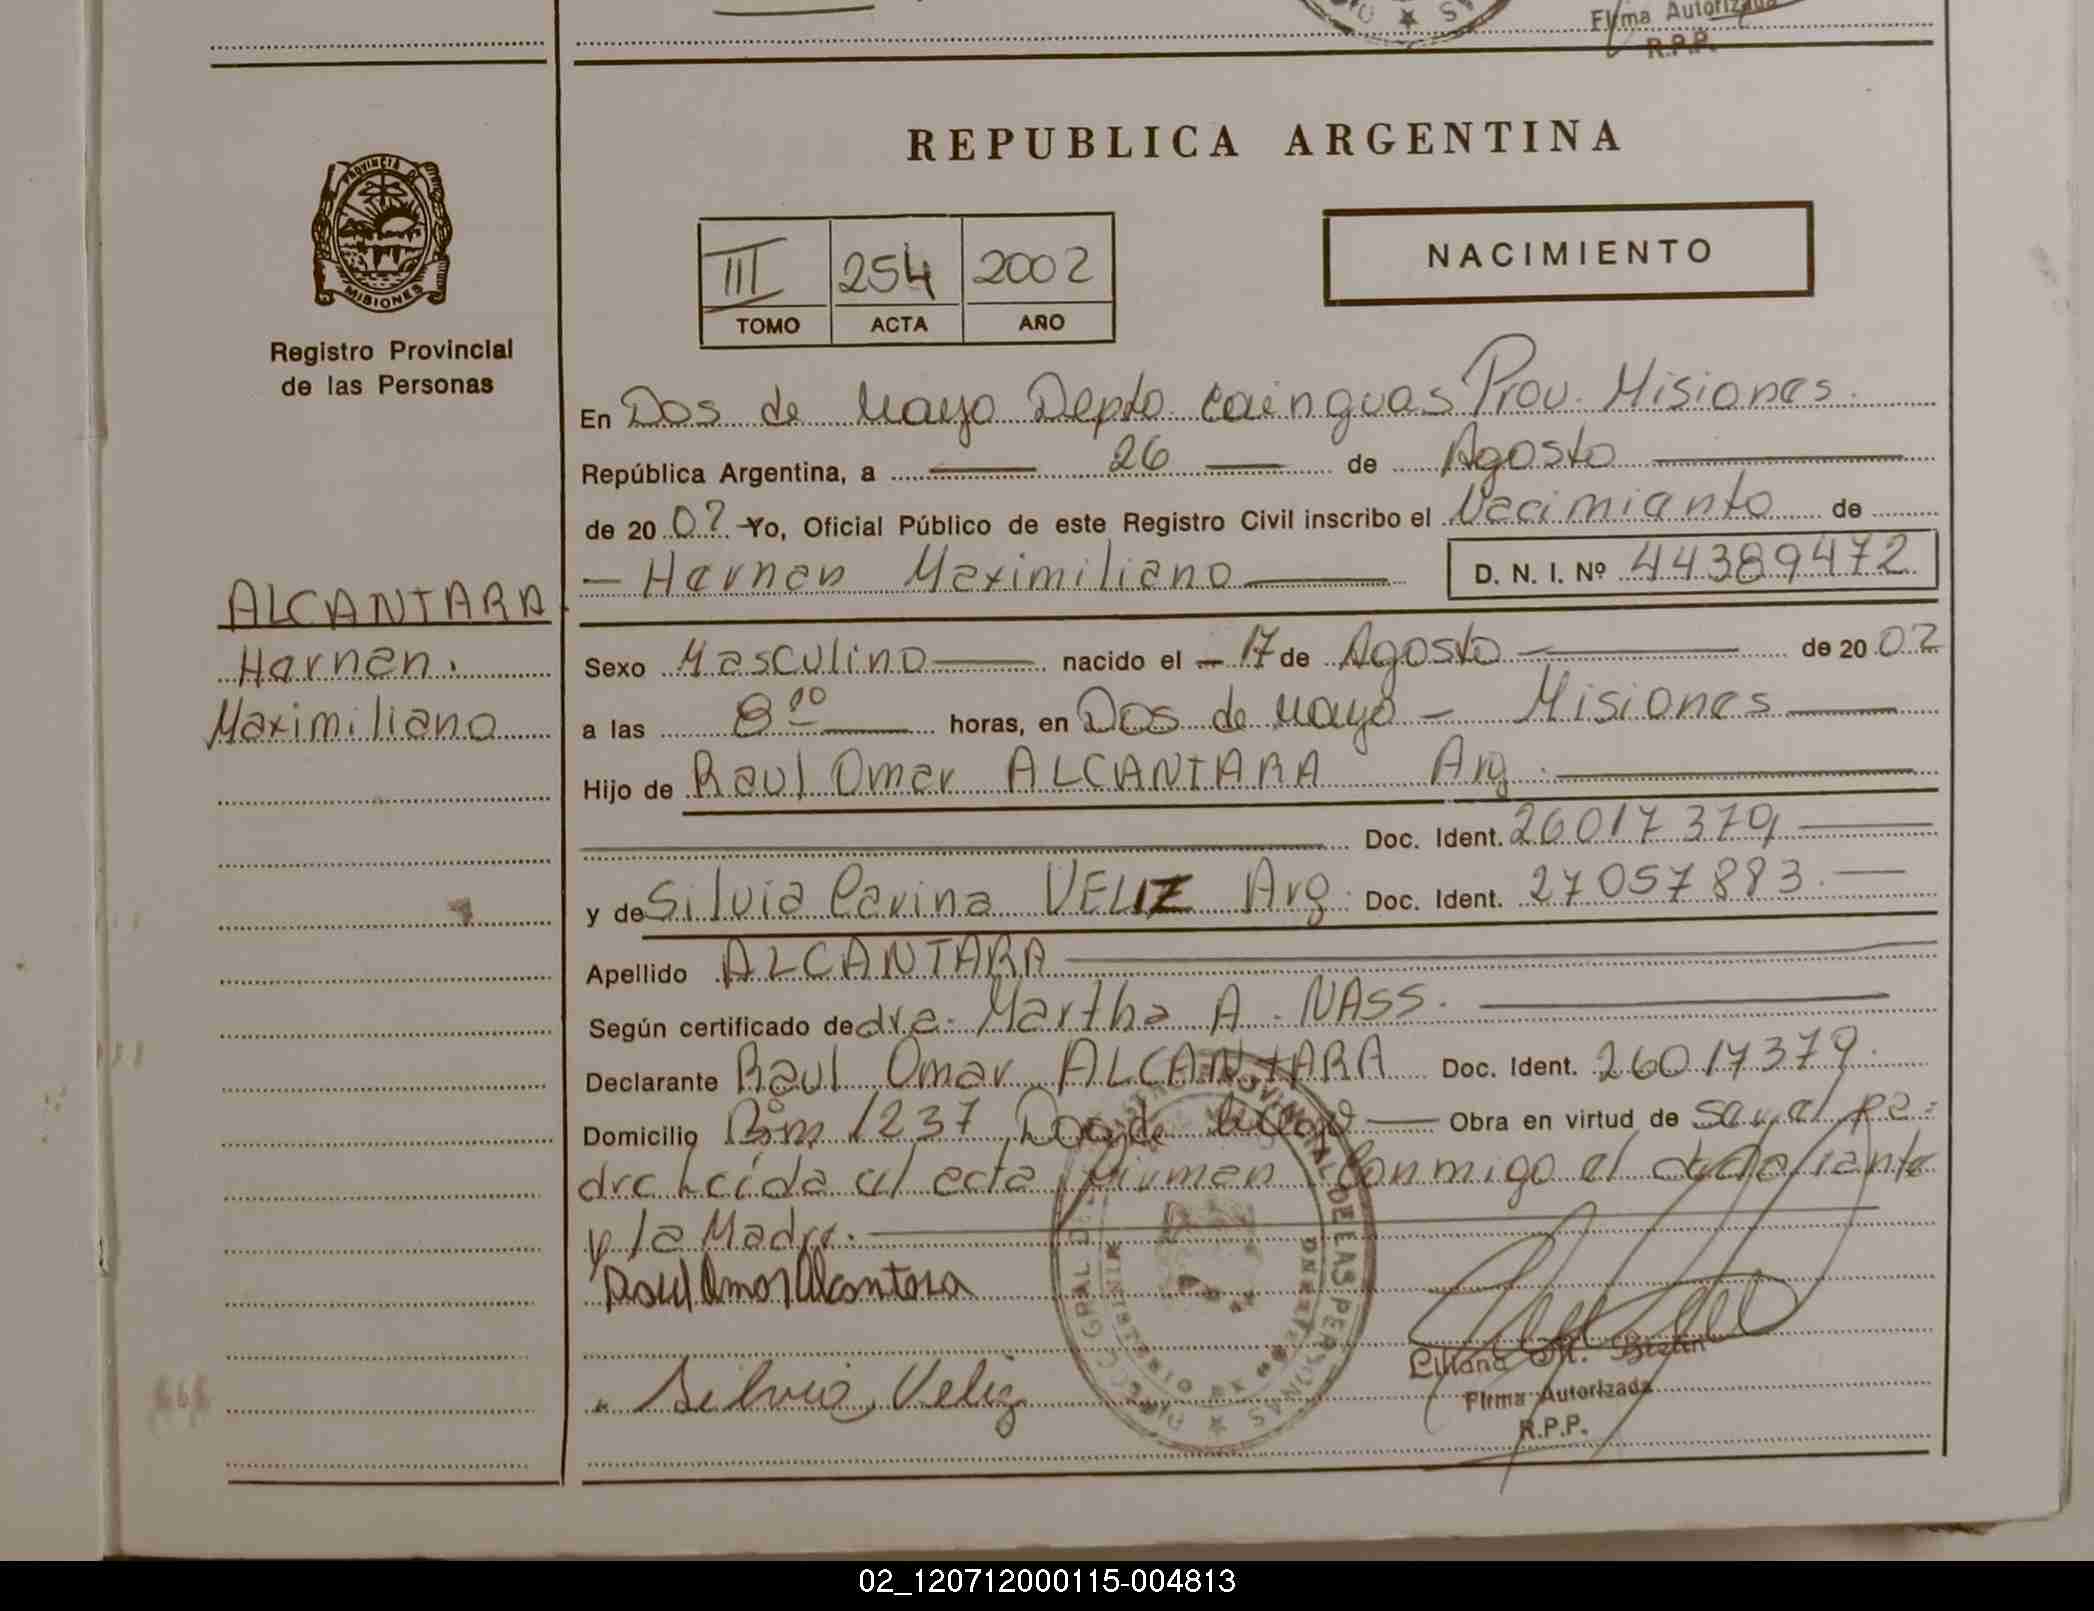 Firma Autorizada
R.P.P.
REPUBLICA ARGENTINA
PROVINCIA DE
MISIONES
Registro Provincial
de las Personas
III 254 2002
TOMO ACTA AÑO
NACIMIENTO
En Dos de Mayo Depto Cainguas Prov. Misiones.
República Argentina, a 26 de Agosto
de 20 02 Yo, Oficial Público de este Registro Civil inscribo el Nacimiento de
Hernen Maximiliano D. N. I. Nº 44389472
ALCANTARA
Hernen.
Maximiliano
Sexo Masculino nacido el 17 de Agosto de 20 02
a las 8 10 horas, en Dos de Mayo - Misiones
Hijo de Raul Omar ALCANTARA Arg.
Doc. Ident. 26017379
y de Silvia Carina VELIZ Arg. Doc. Ident. 27057883.
Apellido ALCANTARA
Según certificado de dra. Martha A. NASS.
Declarante Raul Omar ALCANTARA Doc. Ident. 26017379.
Domicilio Bm 1237 Dos de Mayo Obra en virtud de ser el pa=
dre Leída el acta firman conmigo el declarante
y la Madre.
Raul Omar Alcantara
Silvia Veliz
Liliana M.
Firma Autorizada
R.P.P.
02_120712000115-004813